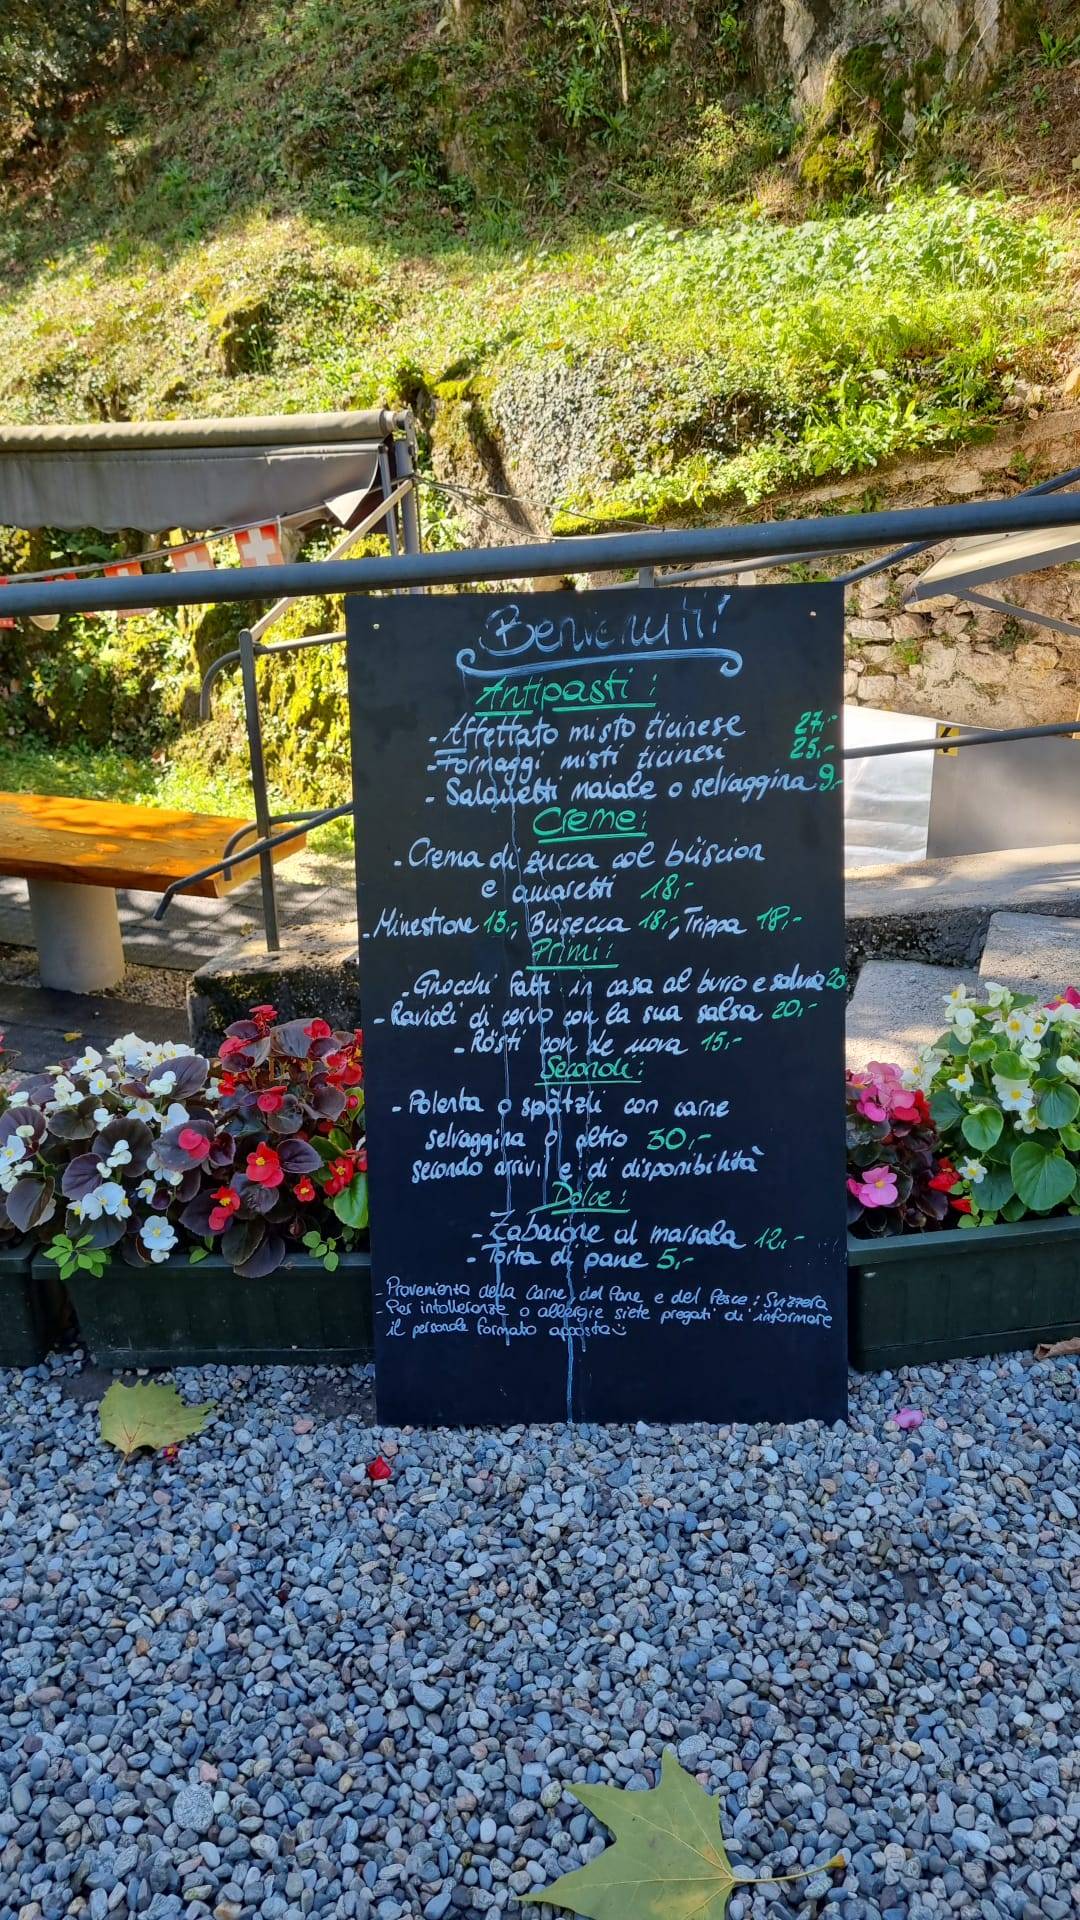 Benvenuti!
Antipasti:
- Affettato misto ticinese 27,-
- Formaggi misti ticinesi 25,-
- Salametti maiale o selvaggina 9,-
Creme:
- Crema di zucca col büscion
e amaretti 18,-
- Minestrone 13,-, Busecca 18,-, Trippa 18,-
Primi:
- Gnocchi fatti in casa al burro e salvia 20
- Ravioli di cervo con la sua salsa 20,-
- Rösti con le uova 15,-
Secondi:
- Polenta o spätzli con carne
selvaggina o altro 30,-
secondo arrivi e di disponibilità
Dolce:
- Zabaione al marsala 12,-
- Torta di pane 5,-
- Provenienza della Carne, del Pane e del Pesce: Svizzera
- Per intolleranze o allergie siete pregati di informare
il personale formato apposta